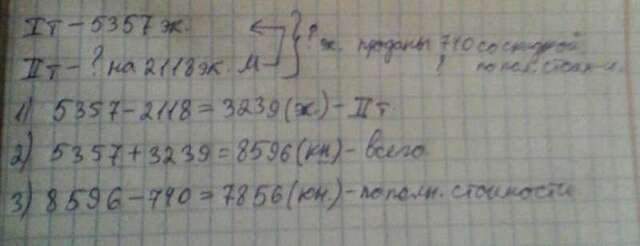 Iт – 5357 эк.
IIт – ? на 2118 эк. м } ? эк. проданы 740 со скидкой
? по пол. стоим.
1) 5357 – 2118 = 3239 (эк.) – IIт.
2) 5357 + 3239 = 8596 (кн.) – всего
3) 8596 – 740 = 7856 (кн.) – по полн. стоимости